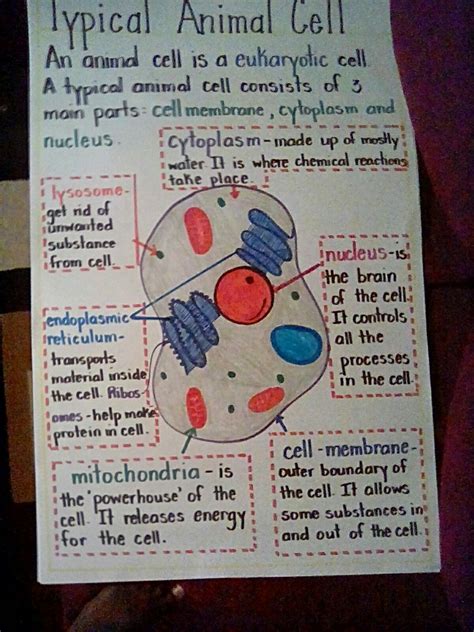 Typical Animal Cell
An animal cell is a eukaryotic cell.
A typical animal cell consists of 3
main parts: cell membrane, cytoplasm and
nucleus.
cytoplasm - made up of mostly
water. It is where chemical reactions
take place.
lysosome-
get rid of
unwanted
substance
from cell.
nucleus-is
the brain
of the cell.
It controls
all the
processes
in the cell.
endoplasmic
reticulum-
transports
material inside
the cell. Ribos-
omes - help make
protein in cell.
mitochondria - is
the 'powerhouse' of the
cell. It releases energy
for the cell.
cell - membrane-
outer boundary of
the cell. It allows
some substances in
and out of the cell.